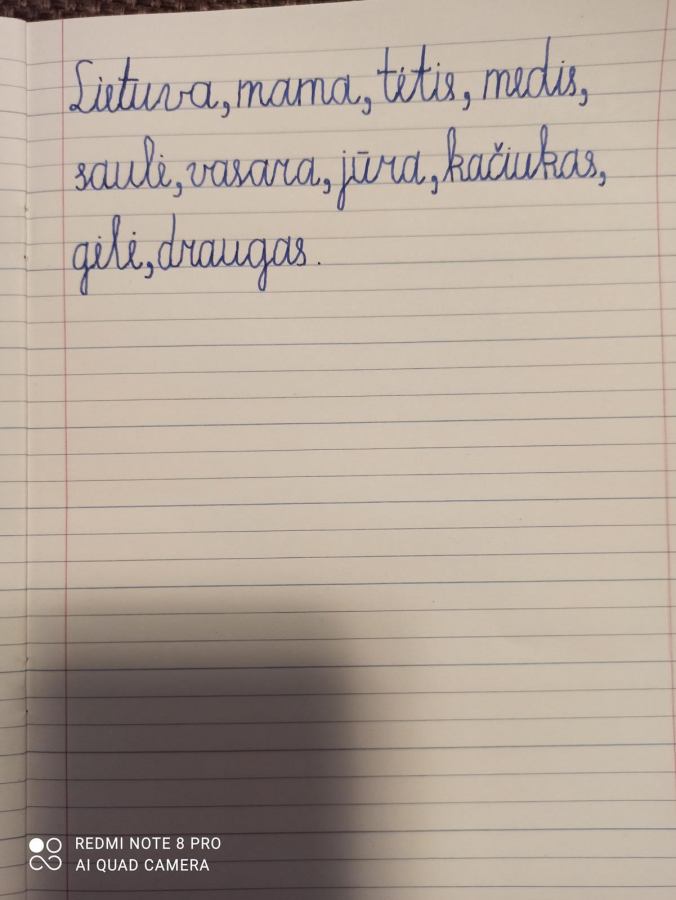 Lietuva, mama, tėtis, medis,
saulė, vasara, jūra, kačiukas,
gėlė, draugas.
REDMI NOTE 8 PRO
AI QUAD CAMERA